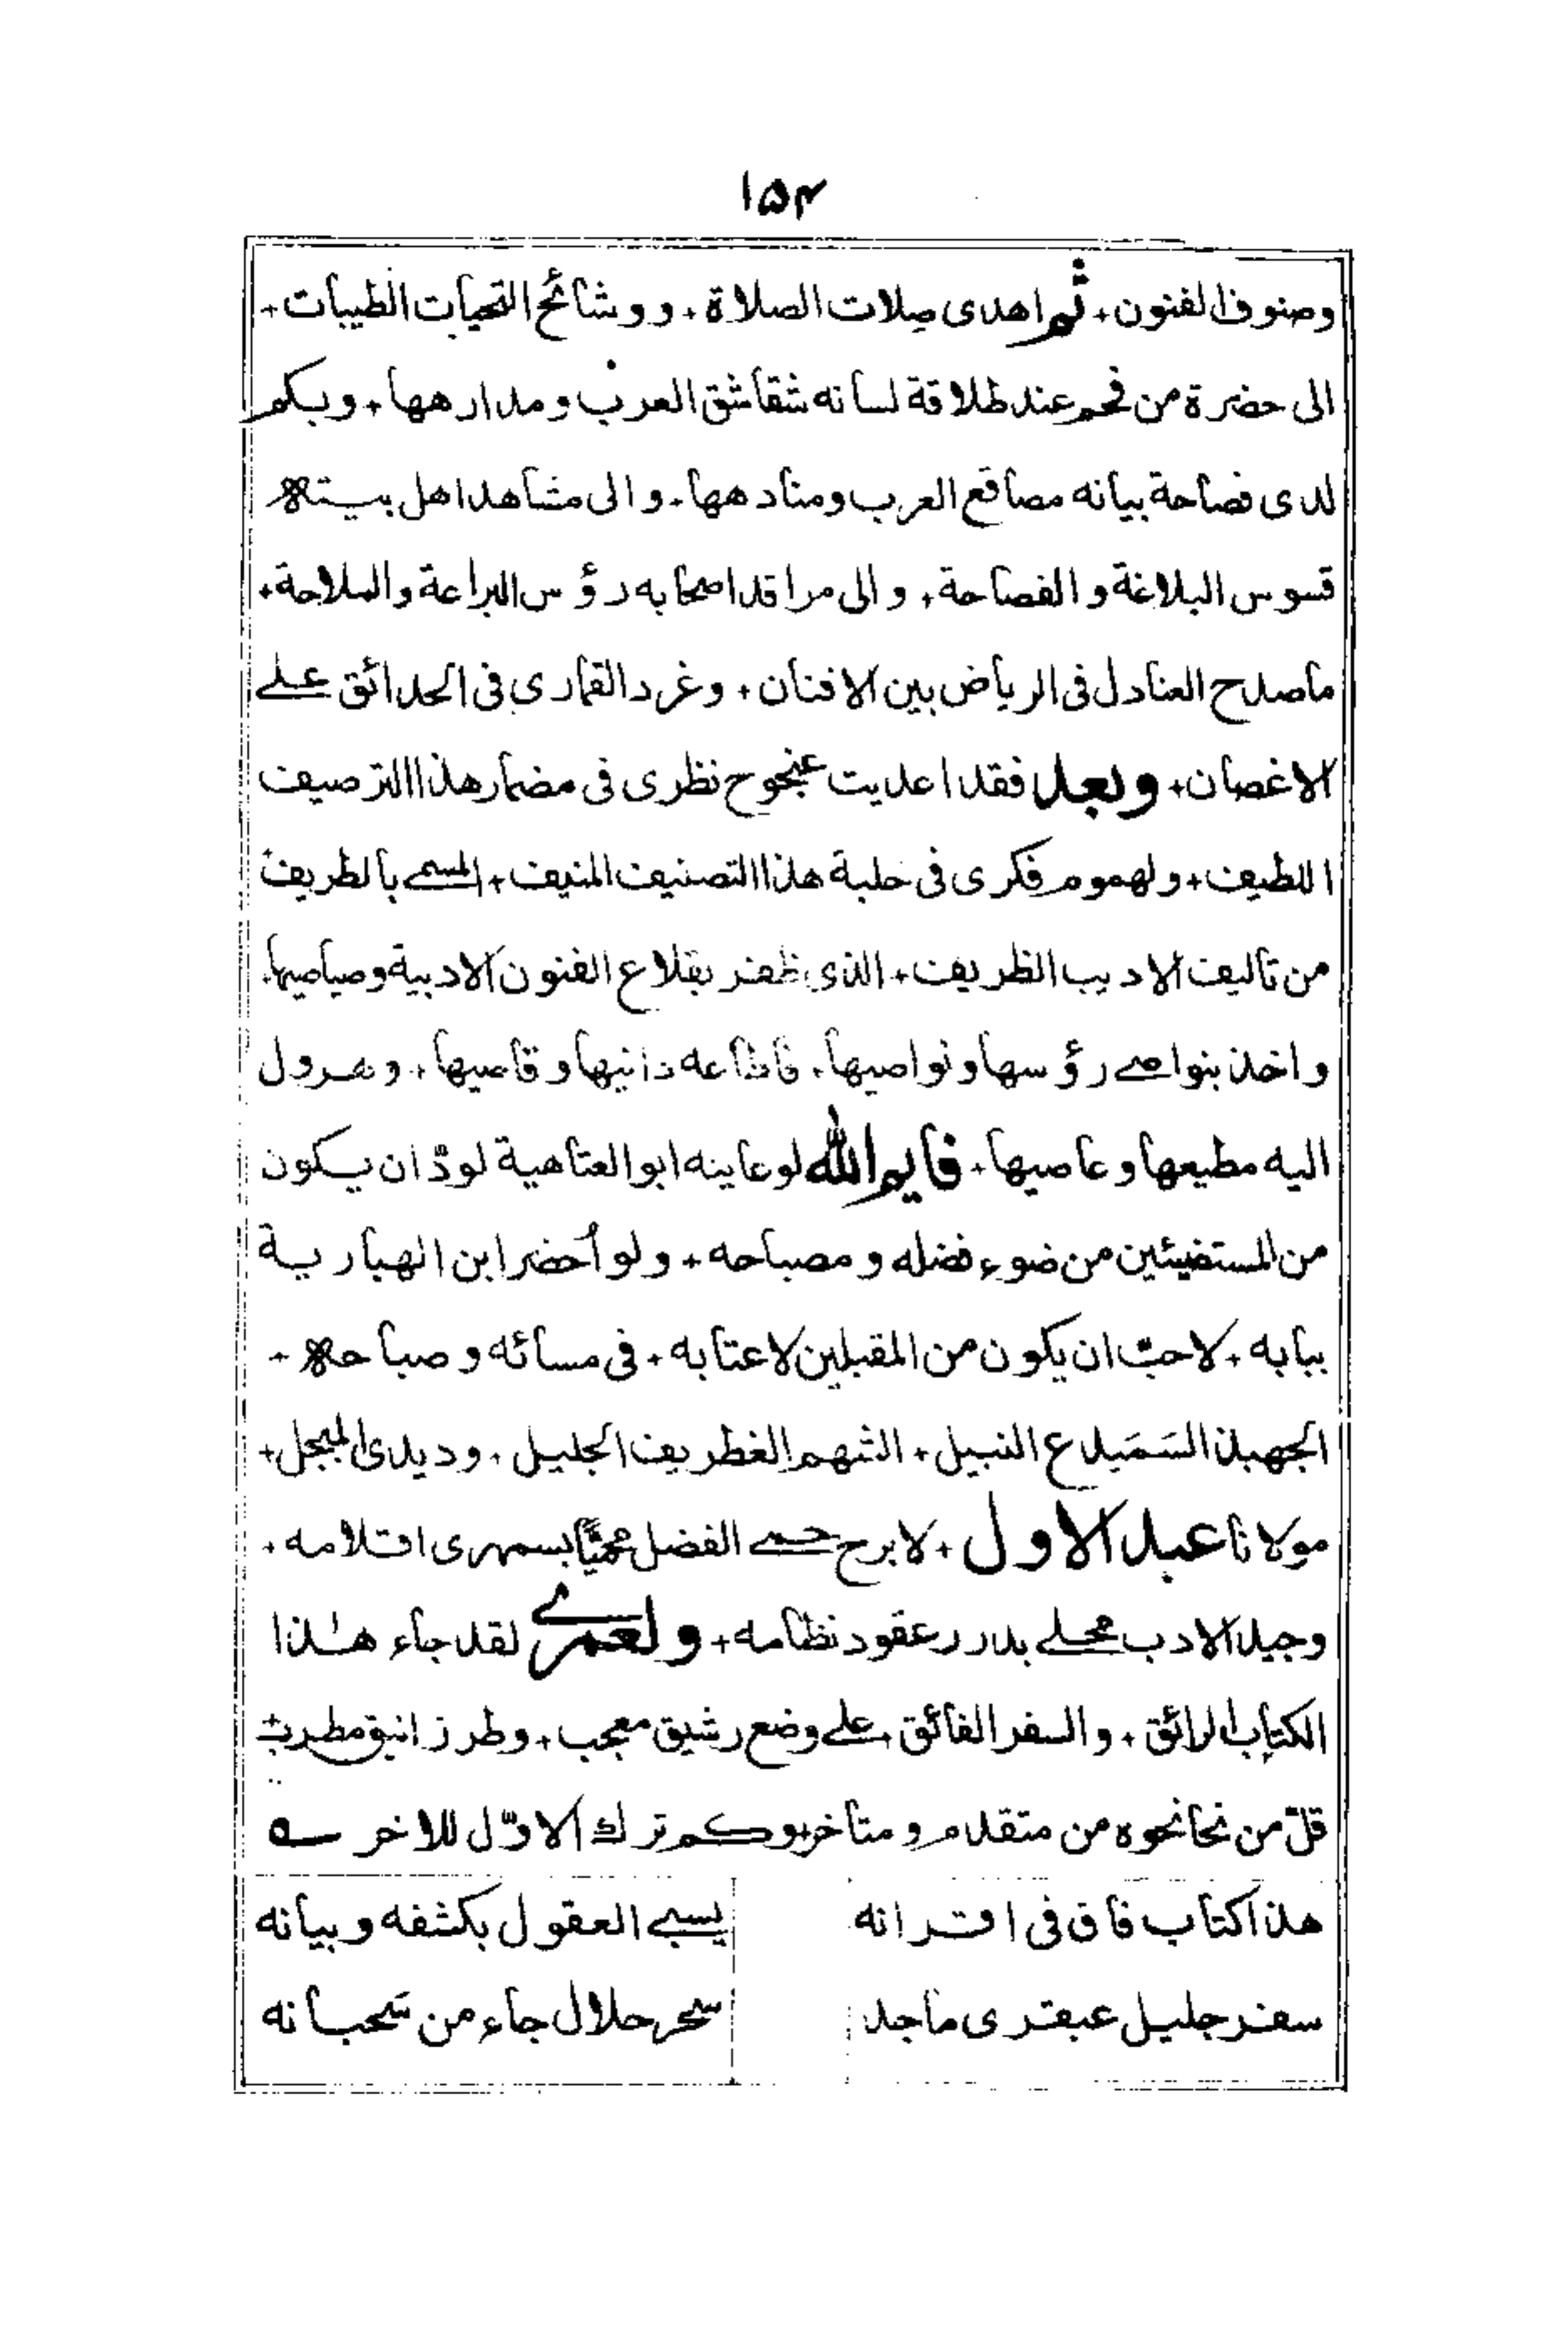 ۱۵۴
وصنوف الفنون+ ثم اهدى صِلات الصلاة+ ووشائح التحيات الطيبات+
الى حضرة من فحم عند طلاقة لسانه شقاشق العرب ومدارهها+ وبكم
لدى فصاحة بيانه مصاقع العرب ومنادهها+ والى مشاهد اهل بيته
قسوس البلاغة والفصاحة+ والى مراقد اصحابه رؤس البراعة والملاحة+
ما صدح العنادل فى الرياض بين الافنان+ وغرد القمارى فى الحدائق على
الاغصان+ وبعد فقد اعديت عنجوح نظرى فى مضمار هذا الترصيف
اللطيف+ ولهموم فكرى فى حلبة هذا التصنيف المنيف+ المسمى بالطريف
من تاليف الاديب الظريف+ الذى ظفر بقلاع الفنون الادبية وصياصيها
واخذ بنواصى رؤسها ونواصيها+ فاطاعه دانيها وقاصيها+ وهرول
اليه مطيعها وعاصيها+ فايم الله لو عاينه ابوالعتاهية لودّ ان يكون
من المستضيئين من ضوء فضله ومصباحه+ ولو اُحضر ابن الهبارية
ببابه+ لاحبّ ان يكون من المقبلين لاعتابه+ فى مسائه وصباحه+
الجهبذ السَمَيدع النبيل+ الشهم الغطريف الجليل+ وديدى المبجل+
مولانا عبد الاول+ لا برح حمى الفضل محميًّا بسمهرى اقلامه+
وجيد الادب محلى بدرر عقود نظامه+ ولعمرى لقد جاء هٰذا
الكتاب الرائق+ والسفر الفائق+ على وضع رشيق معجب+ وطرز انيق مطرب+
قلّ من نحا نحوه من متقدم ومتأخر+ وكم ترك الاوّل للاخر ــه
هذا كتاب فاق فى اقرانه يسبى العقول بكشفه وبيانه
سفر جليل عبقرى ماجد سحر حلال جاء من سَحبانه